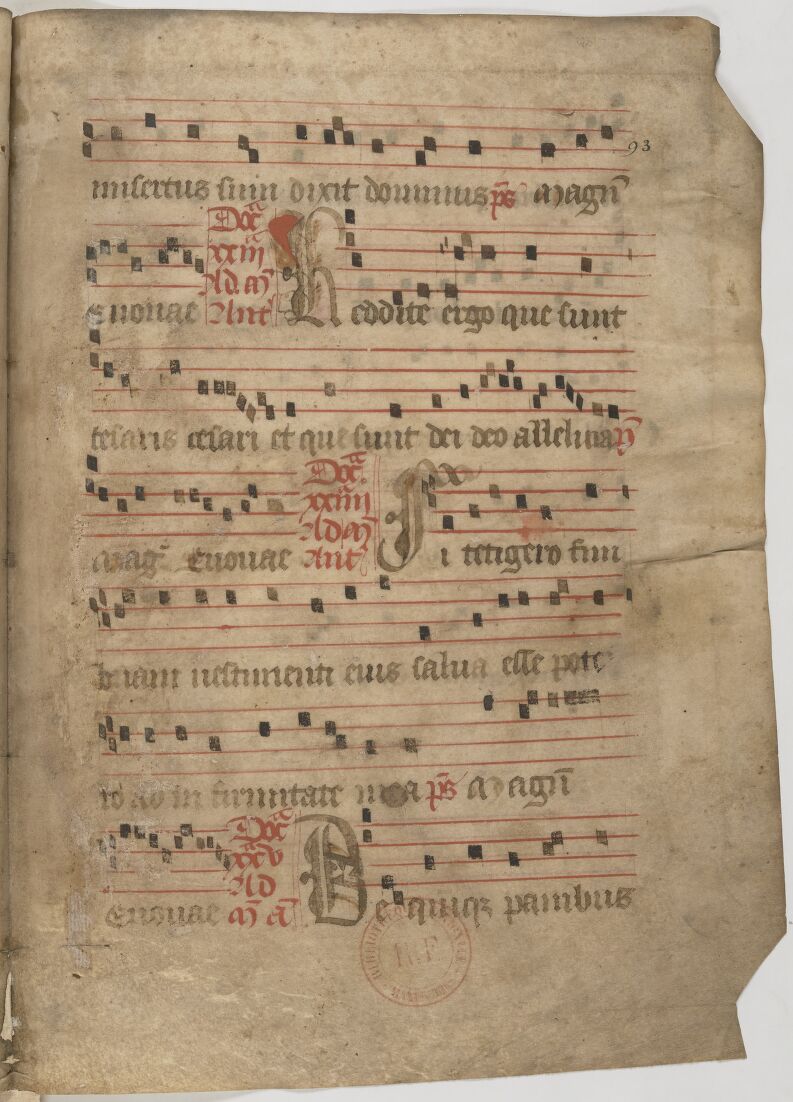 93
misertus sum dixit dominus ps Magn
Doca
xxiii
Ad m
Euouae Ant Reddite ergo que sunt
cesaris cesari et que sunt dei deo alleluia ps
Doca
xxiiii
Ad m
Mag Euouae Ant Si tetigero fim
briam uestimenti eius salua esse pote
ro ab in firmitate mea ps Magn
Doca
xxv
Ad
Euouae m a De quiqz panibus